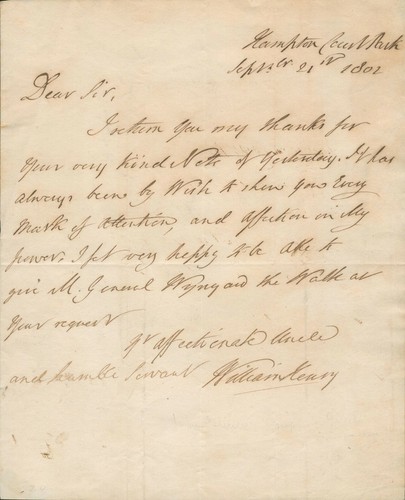 Hampton Court Park
Septbr 21st 1802
Dear Sir,
I return you my thanks for
your very kind Note of Yesterday. It has
always been my Wish to shew you Every
mark of attention, and affection in My
power. I felt very happy to be able to
give M. General Wynyard the Walk at
Your request
yr affectionate Uncle
and humble Servant William Henry